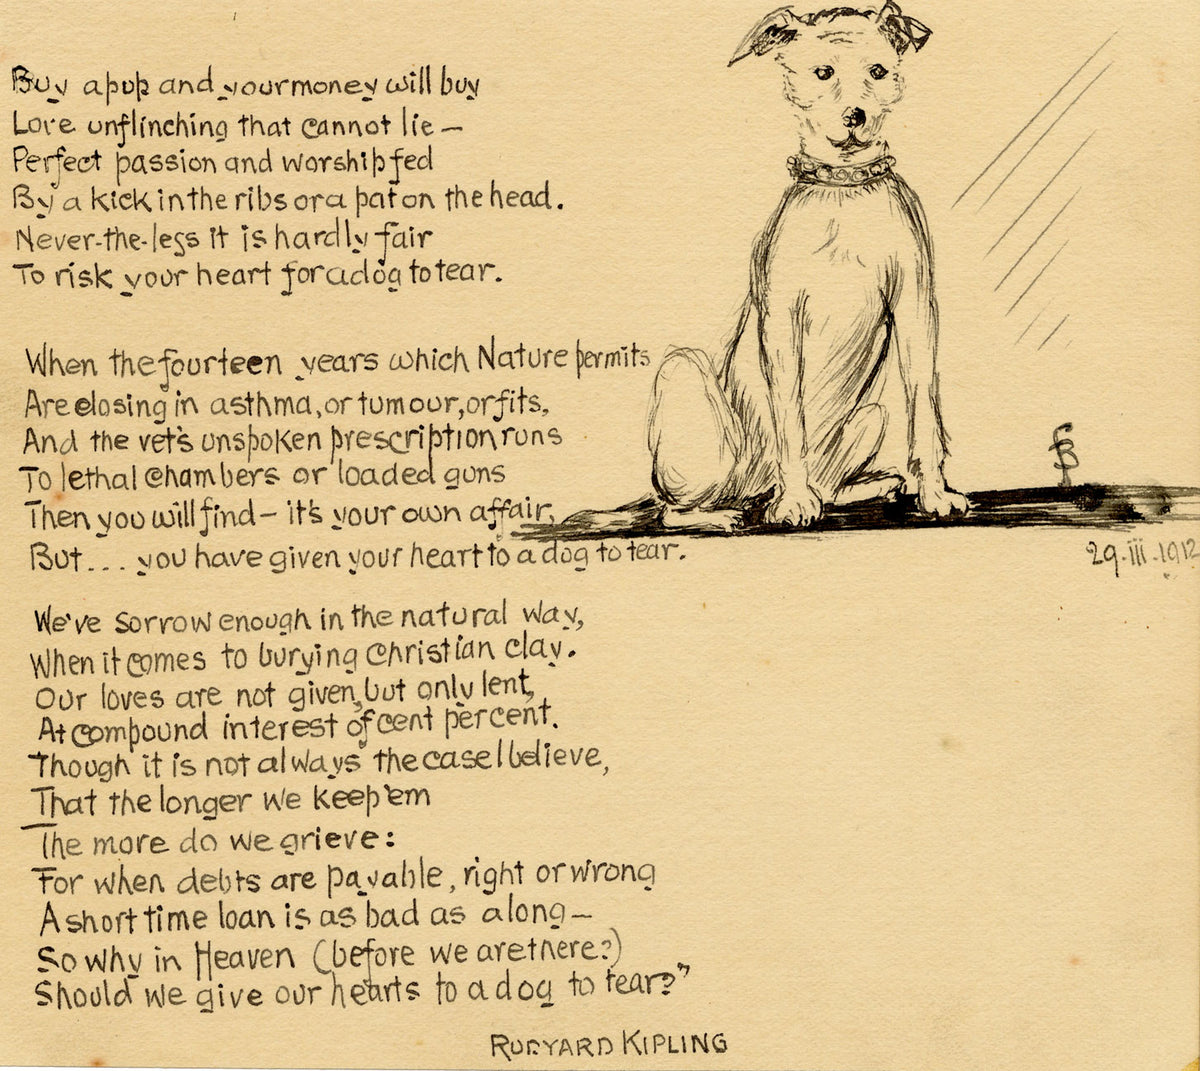 Buy a pup and your money will buy
Love unflinching that cannot lie –
Perfect passion and worship fed
By a kick in the ribs or a pat on the head.
Never-the-less it is hardly fair
To risk your heart for a dog to tear.
When the fourteen years which Nature permits
Are closing in asthma, or tumour, or fits,
And the vet's unspoken prescription runs
To lethal chambers or loaded guns
Then you will find – it's your own affair,
But... you have given your heart to a dog to tear.
29.iii.1912
We've sorrow enough in the natural way,
When it comes to burying Christian clay.
Our loves are not given, but only lent,
At compound interest of cent percent.
Though it is not always the case I believe,
That the longer we keep 'em
The more do we grieve:
For when debts are payable, right or wrong
A short time loan is as bad as a long –
So why in Heaven (before we are there?)
Should we give our hearts to a dog to tear?"
RUDYARD KIPLING